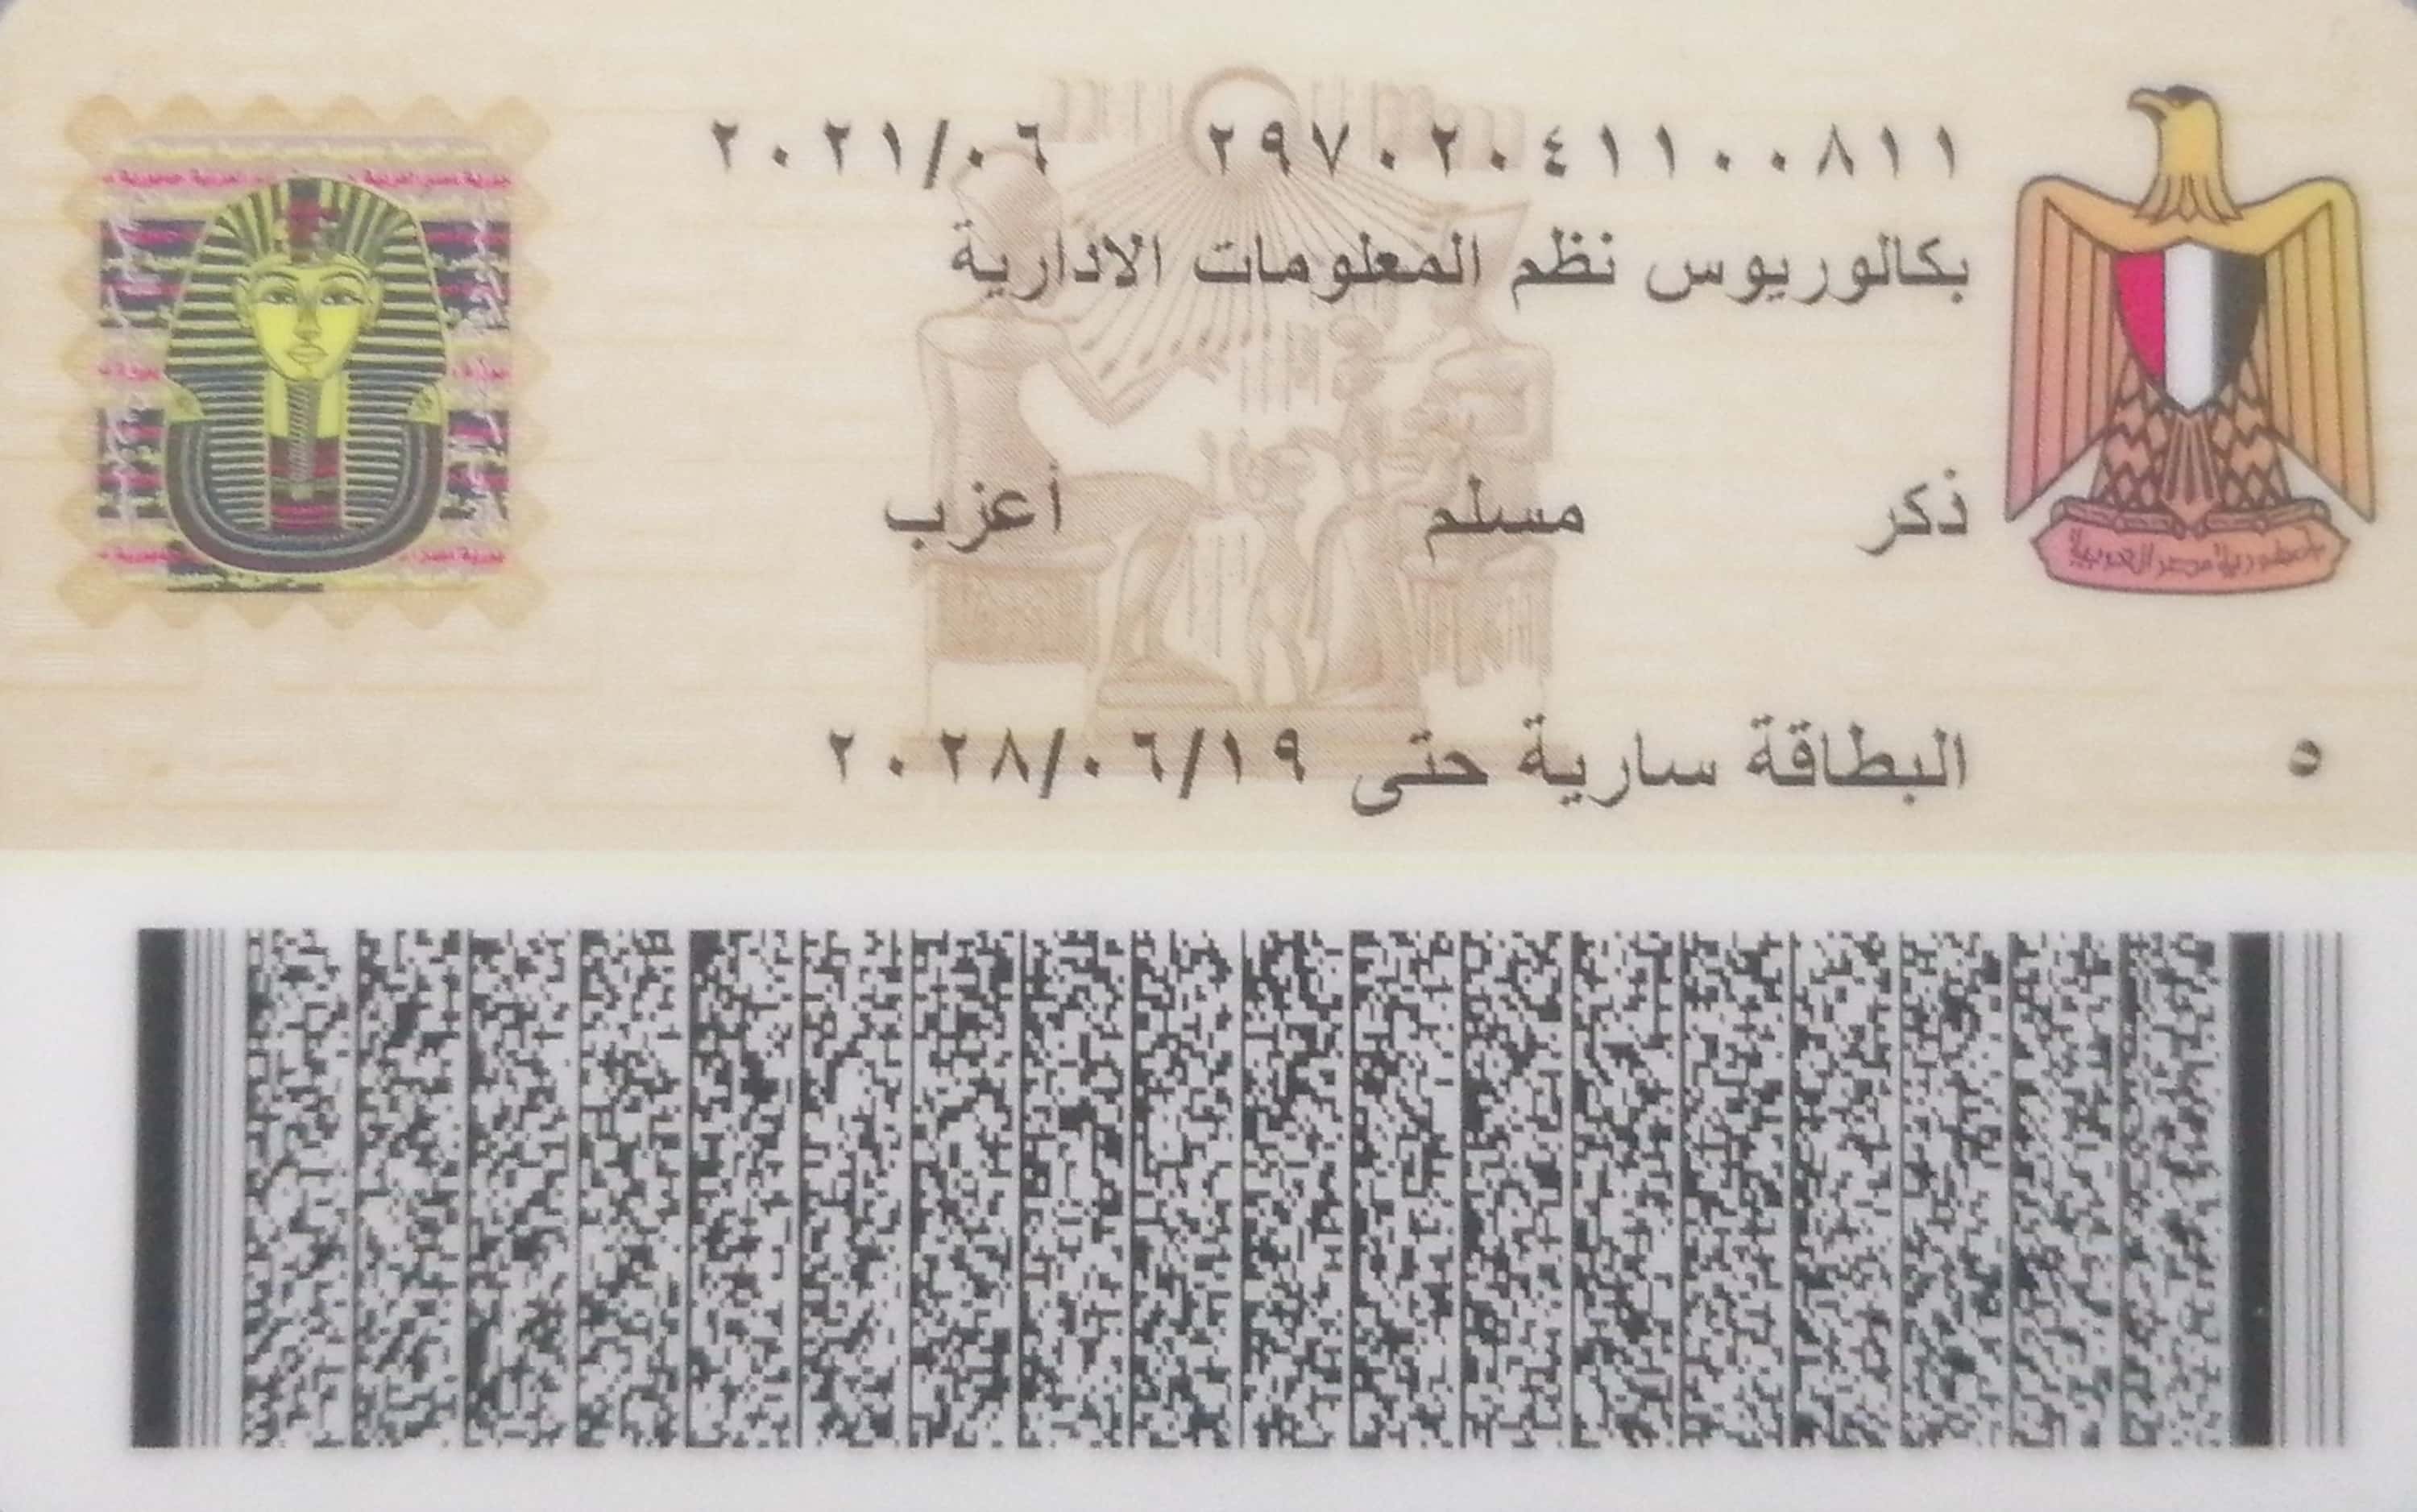 ٢٩٧٠٢٠٤١١٠٠٨١١ ٢٠٢١/٠٦
بكالوريوس نظم المعلومات الادارية
ذكر مسلم أعزب
٥ البطاقة سارية حتى ٢٠٢٨/٠٦/١٩